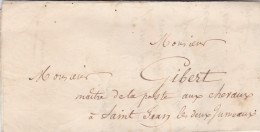 Monsieur
Monsieur Gibert
maître de la poste aux chevaux
à Saint Jean les deux Jumeaux